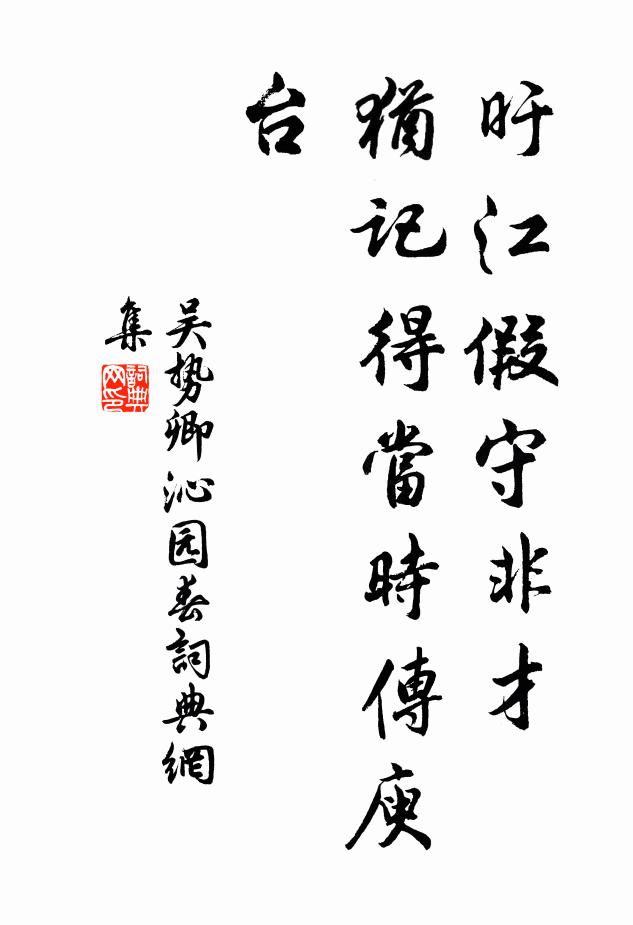 旴江假守非才
猶記得當時傳庾
台
吴势卿沁园春詞典網
集
詞典
网印